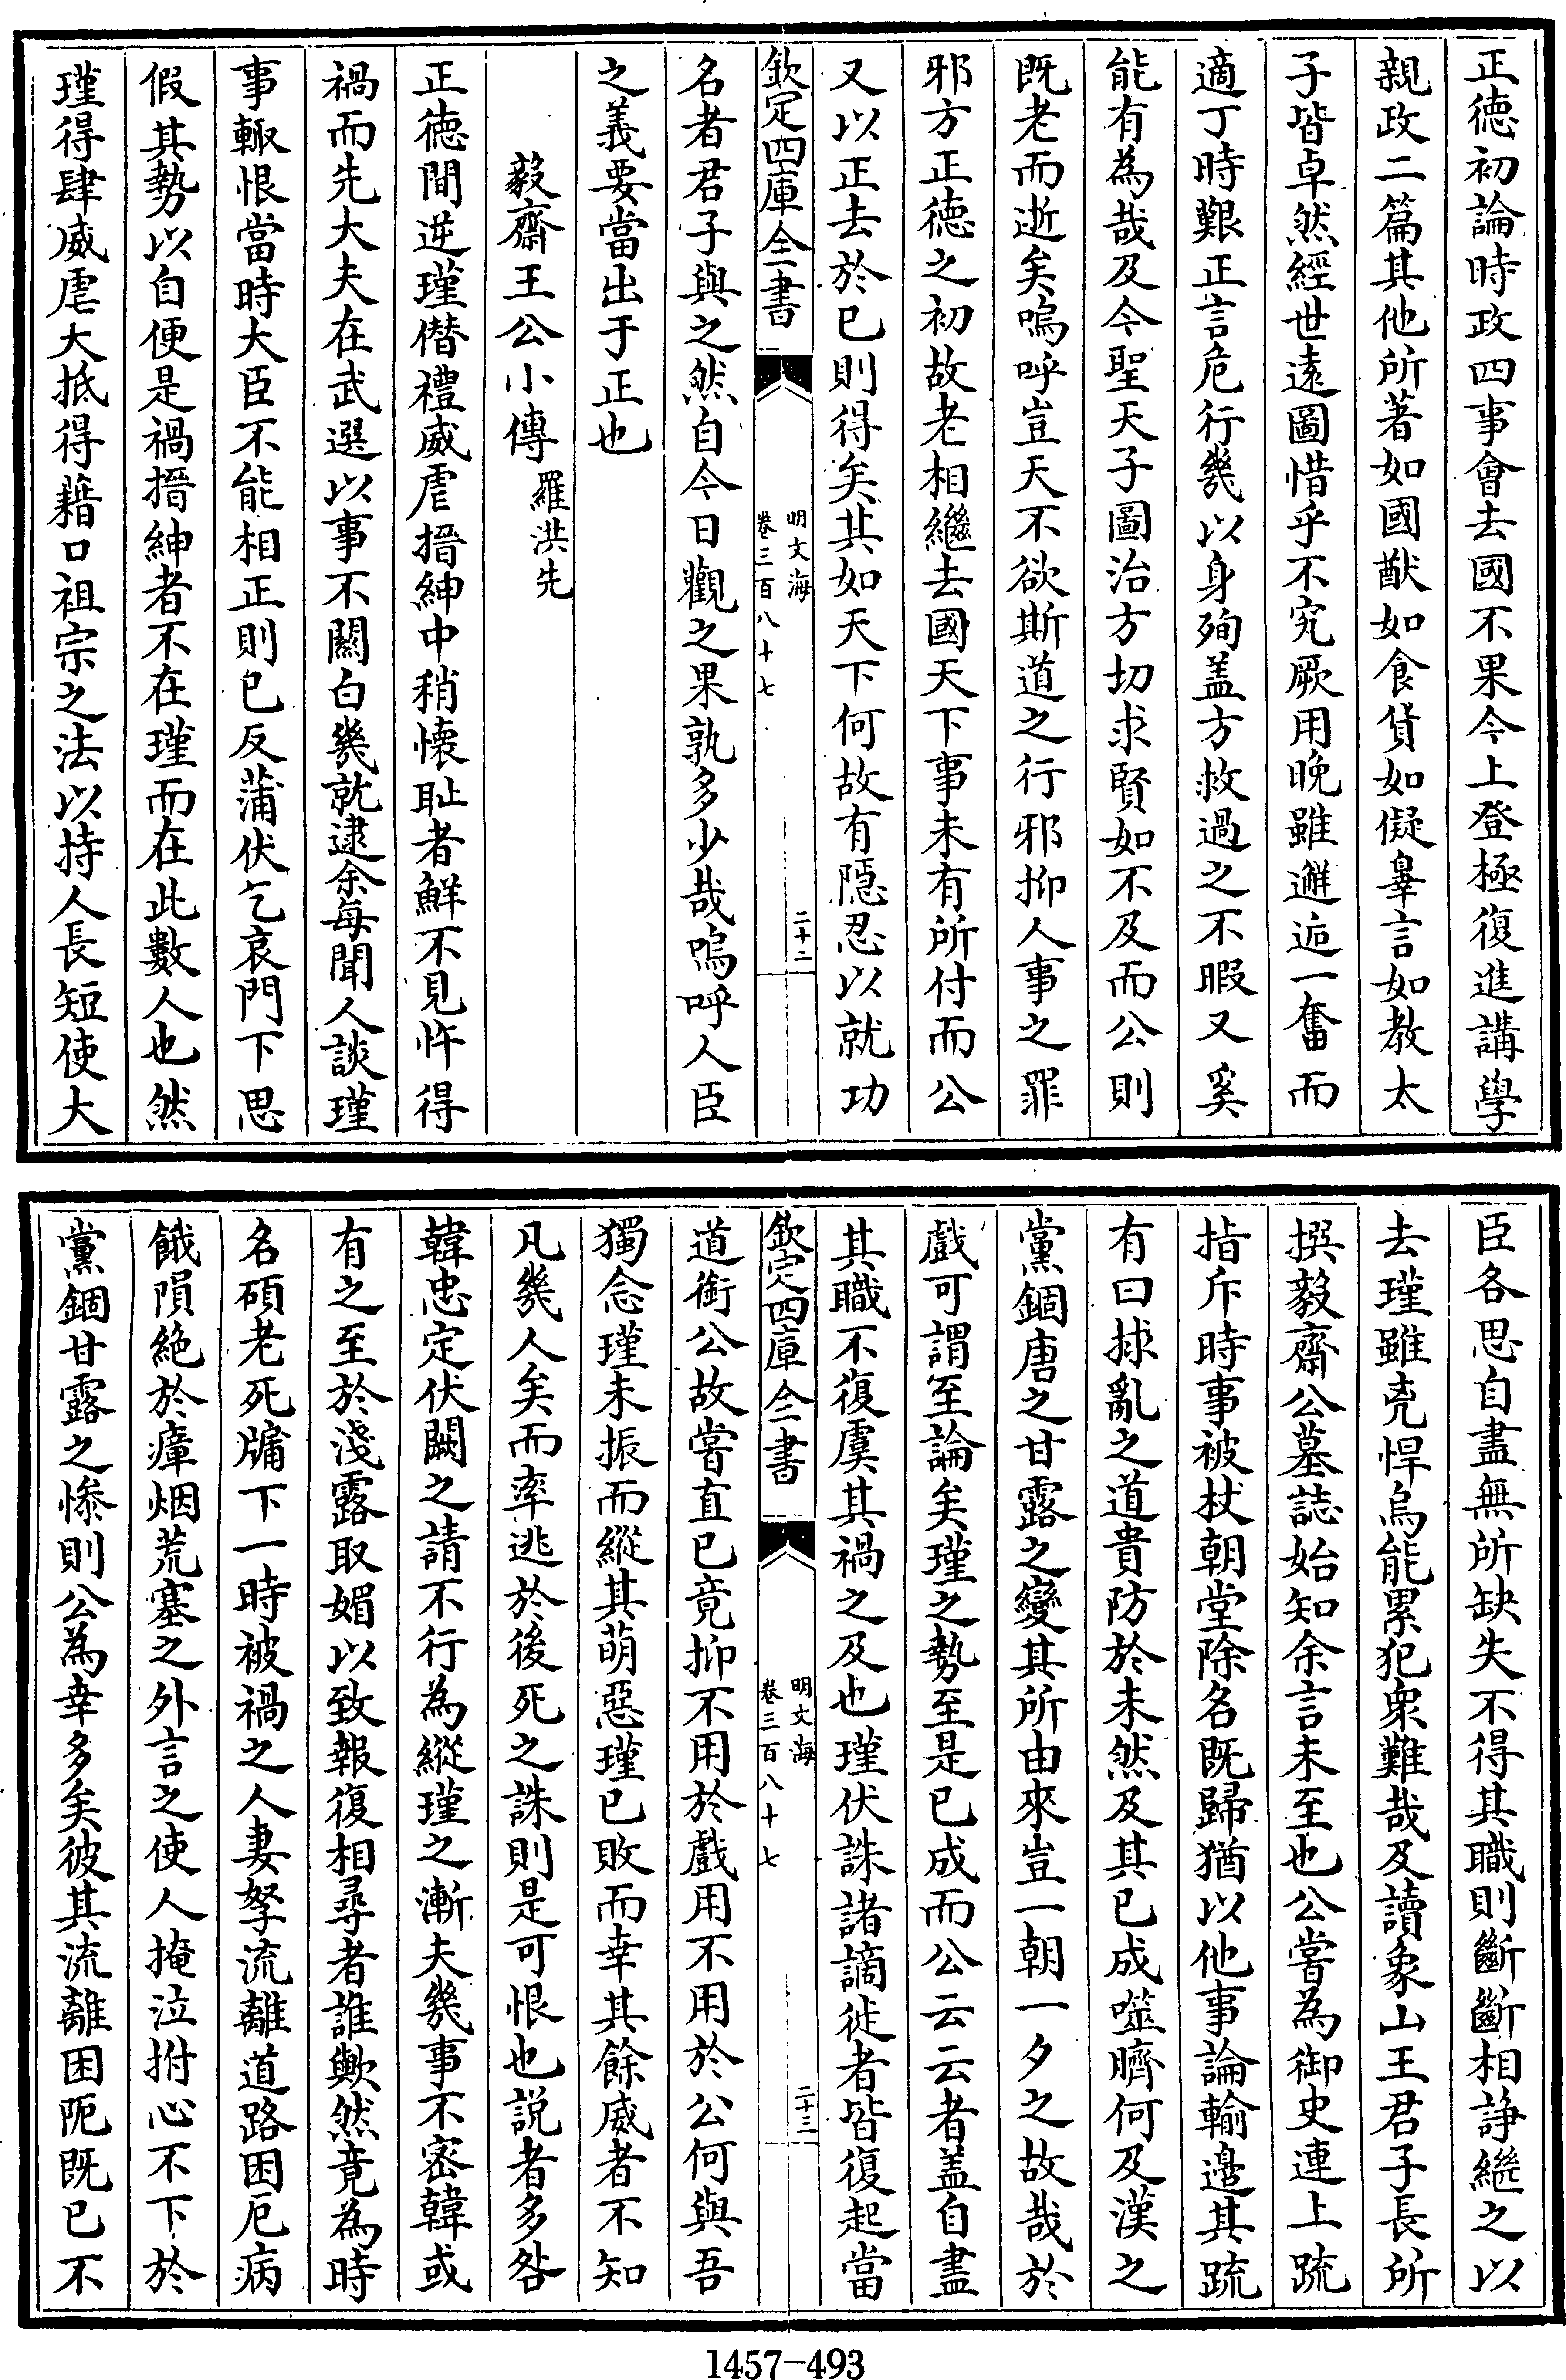 正徳初論時政四事會去國不果今上登極復進講學
親政二篇其他所著如國猷如食貨如儗辠言如教太
子皆卓然經世遠圖惜乎不究厥用晩雖邂逅一奮而
適丁時艱正言危行幾以身殉盖方救過之不暇又奚
能有為哉及今聖天子圖治方切求賢如不及而公則
既老而逝矣嗚呼豈天不欲斯道之行邪抑人事之罪
邪方正徳之初故老相繼去國天下事未有所付而公
又以正去於已則得矣其如天下何故有隠忍以就功
欽定四庫全書
明文海
卷三百八十七
二十二
名者君子與之然自今日觀之果孰多少哉嗚呼人臣
之義要當出于正也
毅齋王公小傳 羅洪先
正徳間逆瑾僭禮威虐搢紳中稍懐耻者鮮不見忤得
禍而先大夫在武選以事不闗白幾就逮余每聞人談瑾
事輙恨當時大臣不能相正則已反蒲伏乞哀門下思
假其勢以自便是禍搢紳者不在瑾而在此數人也然
瑾得肆威虐大抵得藉口祖宗之法以持人長短使大
臣各思自盡無所缺失不得其職則斷斷相諍繼之以
去瑾雖兇悍烏能累犯衆難哉及讀象山王君子長所
撰毅齋公墓誌始知余言未至也公嘗為御史連上疏
指斥時事被杖朝堂除名既歸猶以他事論輸邉其疏
有曰捄亂之道貴防於未然及其已成噬臍何及漢之
黨錮唐之甘露之變其所由來豈一朝一夕之故哉於
戲可謂至論矣瑾之勢至是已成而公云云者盖自盡
其職不復虞其禍之及也瑾伏誅諸謫徙者皆復起當
欽定四庫全書
明文海
卷三百八十七
二十三
道銜公故嘗直已竟抑不用於戲用不用於公何與吾
獨念瑾未振而縱其萌惡瑾已敗而幸其餘威者不知
凡幾人矣而率逃於後死之誅則是可恨也説者多咎
韓忠定伏闕之請不行為縱瑾之漸夫幾事不宻韓或
有之至於淺露取媚以致報復相尋者誰歟然竟為時
名碩老死牖下一時被禍之人妻孥流離道路困厄病
餓隕絶於瘴烟荒塞之外言之使人掩泣拊心不下於
黨錮甘露之慘則公為幸多矣彼其流離困阨既已不
1457-493